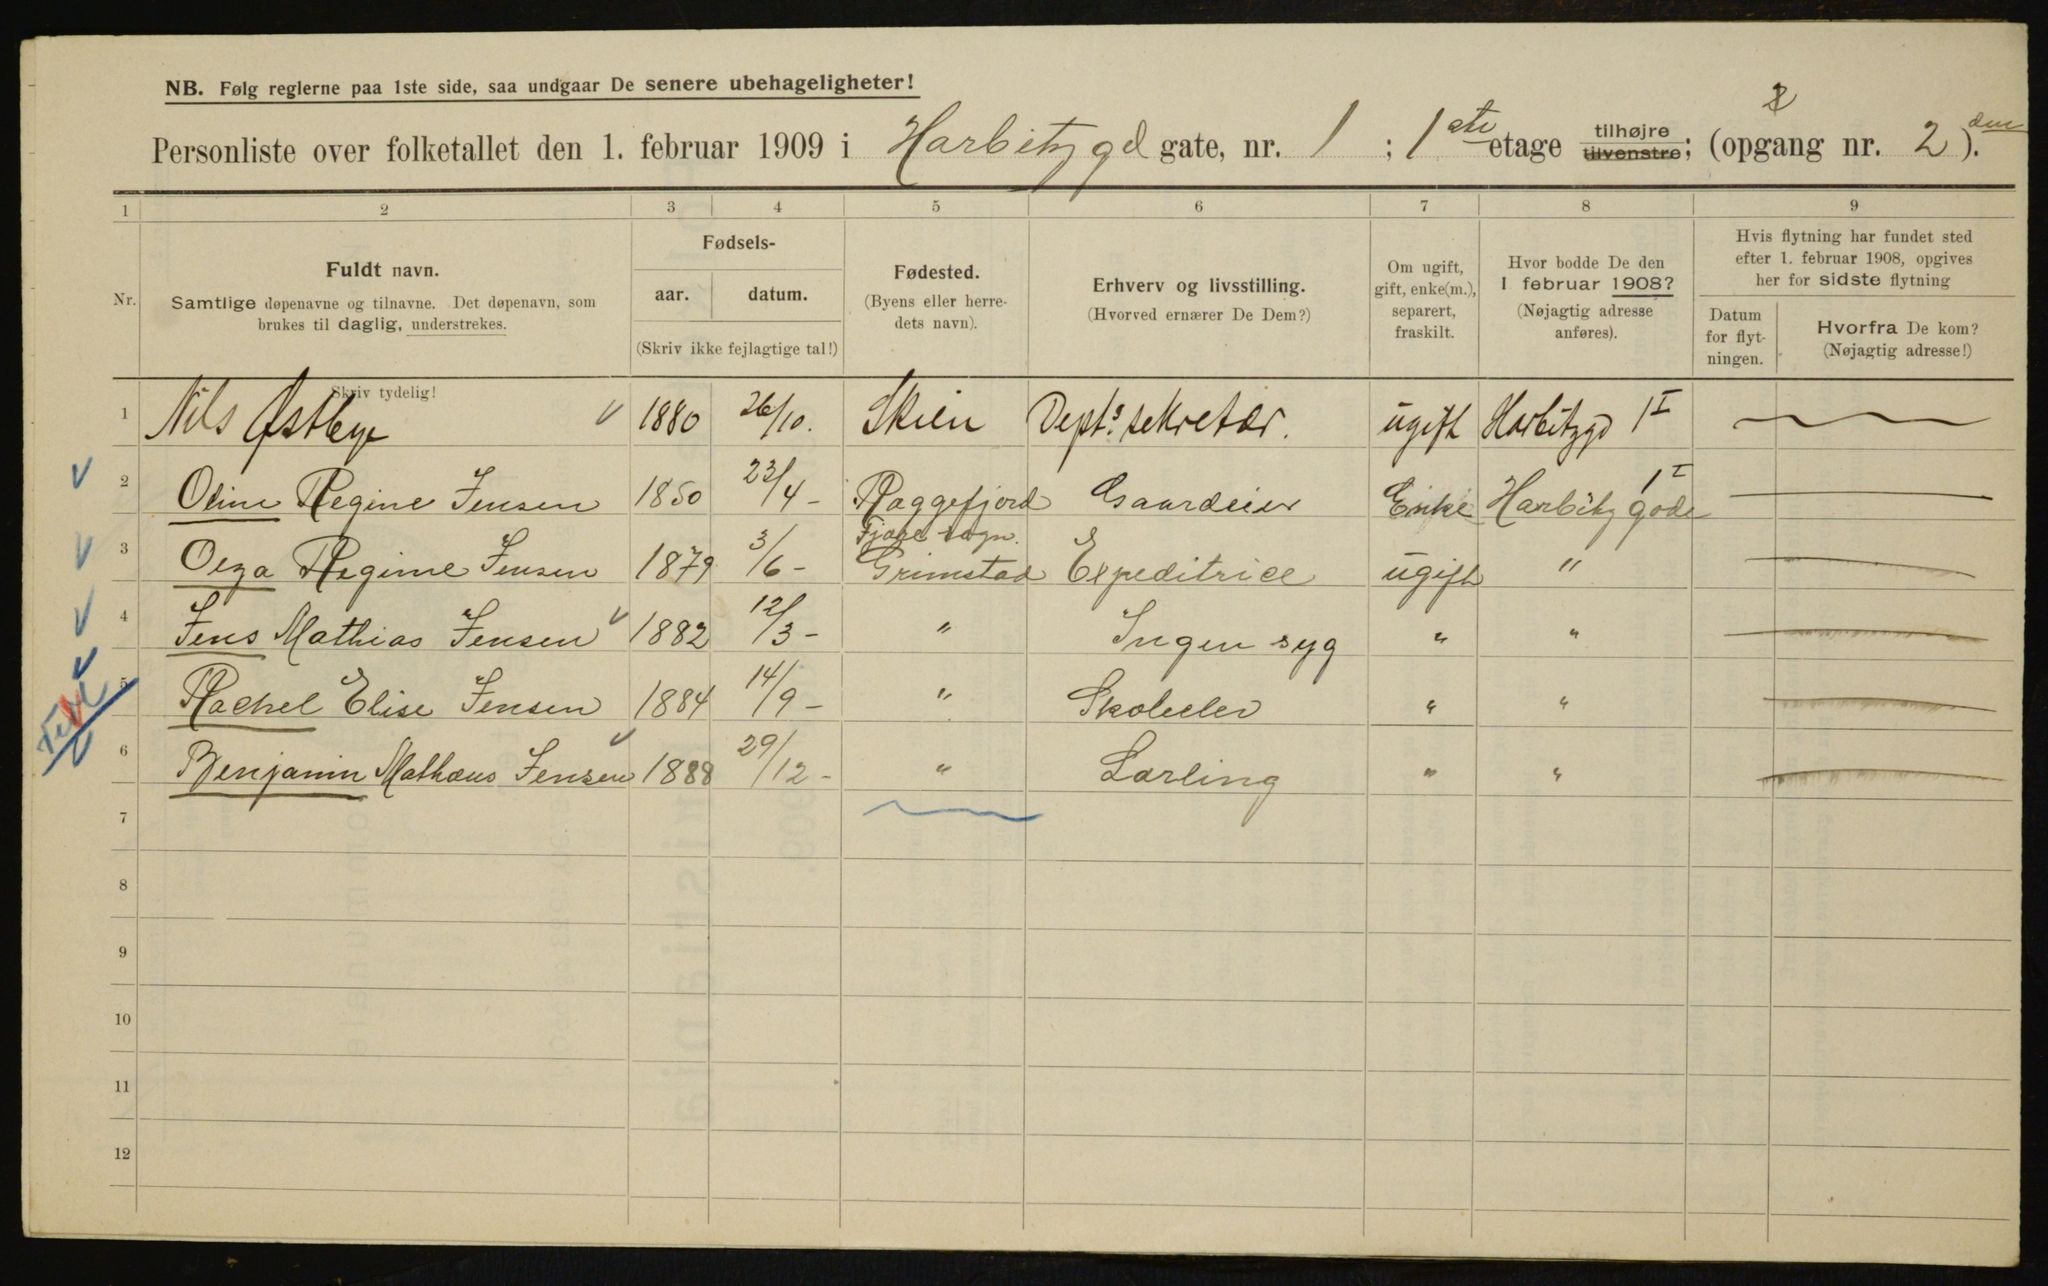 NB. Følg reglerne paa 1ste side, saa undgaar De senere ubehageligheter!
Personliste over folketallet den 1. februar 1909 i Harbitzgd gate, nr. 1 ; 1 ste etage tilhøjre tilvenstre; (opgang nr. 2 den ).
1 2 3 4 5 6 7 8 9
Nr. Fuldt navn. Samtlige døpenavne og tilnavne. Det døpenavn, som brukes til daglig, understrekes. Skriv tydelig!
Fødsels- aar. datum. (Skriv ikke fejlagtige tal!)
Fødested. (Byens eller herredets navn).
Erhverv og livsstilling. (Hvorved ernærer De Dem?)
Om ugift, gift, enke(m.), separert, fraskilt.
Hvor bodde De den 1 februar 1908? (Nøjagtig adresse anføres).
Hvis flytning har fundet sted efter 1. februar 1908, opgives her for sidste flytning
Datum for flytningen. Hvorfra De kom? (Nøjagtig adresse!)
1 Nils Østbye 1880 26/10. Skien Dept.s sekretær. ugift Harbitzgd 1 I
2 Oline Regine Jensen 1850 23/4 - Raggefjord Gaardeier Enke Harbitz gade 1 I
3 Olga Regine Jensen 1879 3/6 - Fjære sogn. Grimstad Expeditrice ugift "
4 Jens Mathias Jensen 1882 12/3 - " Ingen syg " "
5 Rachel Elise Jensen 1884 14/9 - " Skoleelev " "
6 Benjamin Mathæus Jensen 1888 29/12 - " Lærling " "
7
8
9
10
11
12